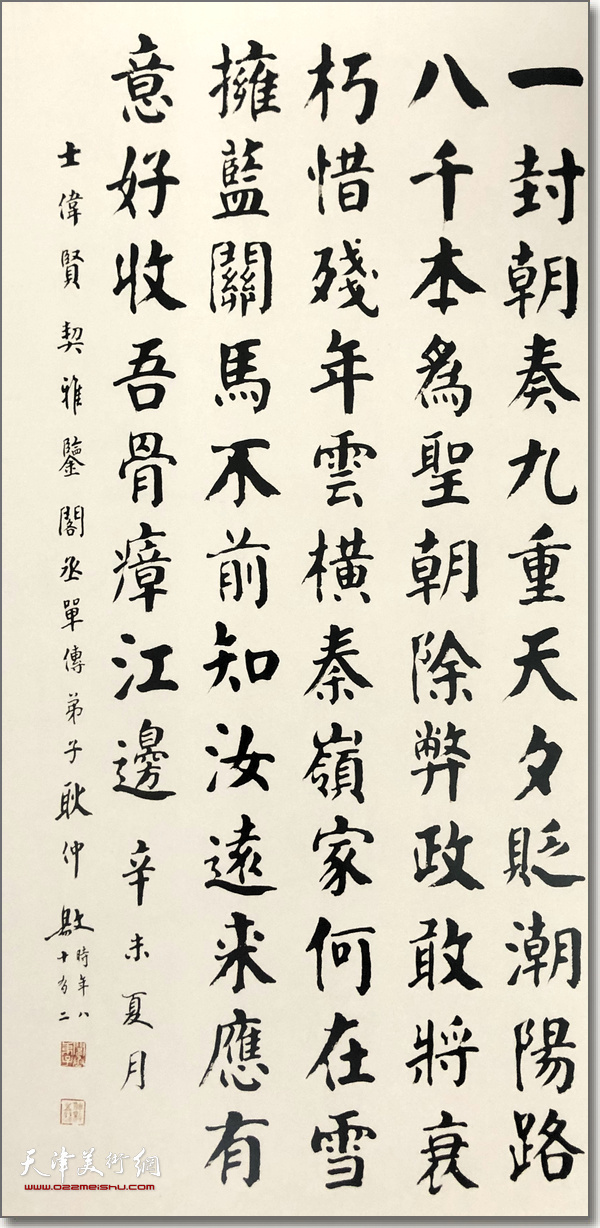 一封朝奏九重天夕貶潮陽路
八千本爲聖朝除弊政敢將衰
朽惜殘年雲橫秦嶺家何在雪
擁藍關馬不前知汝遠來應有
意好收吾骨瘴江邊 辛未夏月
士偉賢契雅鑒 閣丞單傳弟子耿仲敭 時年八
十有二
天津美術網
www.022meishu.com